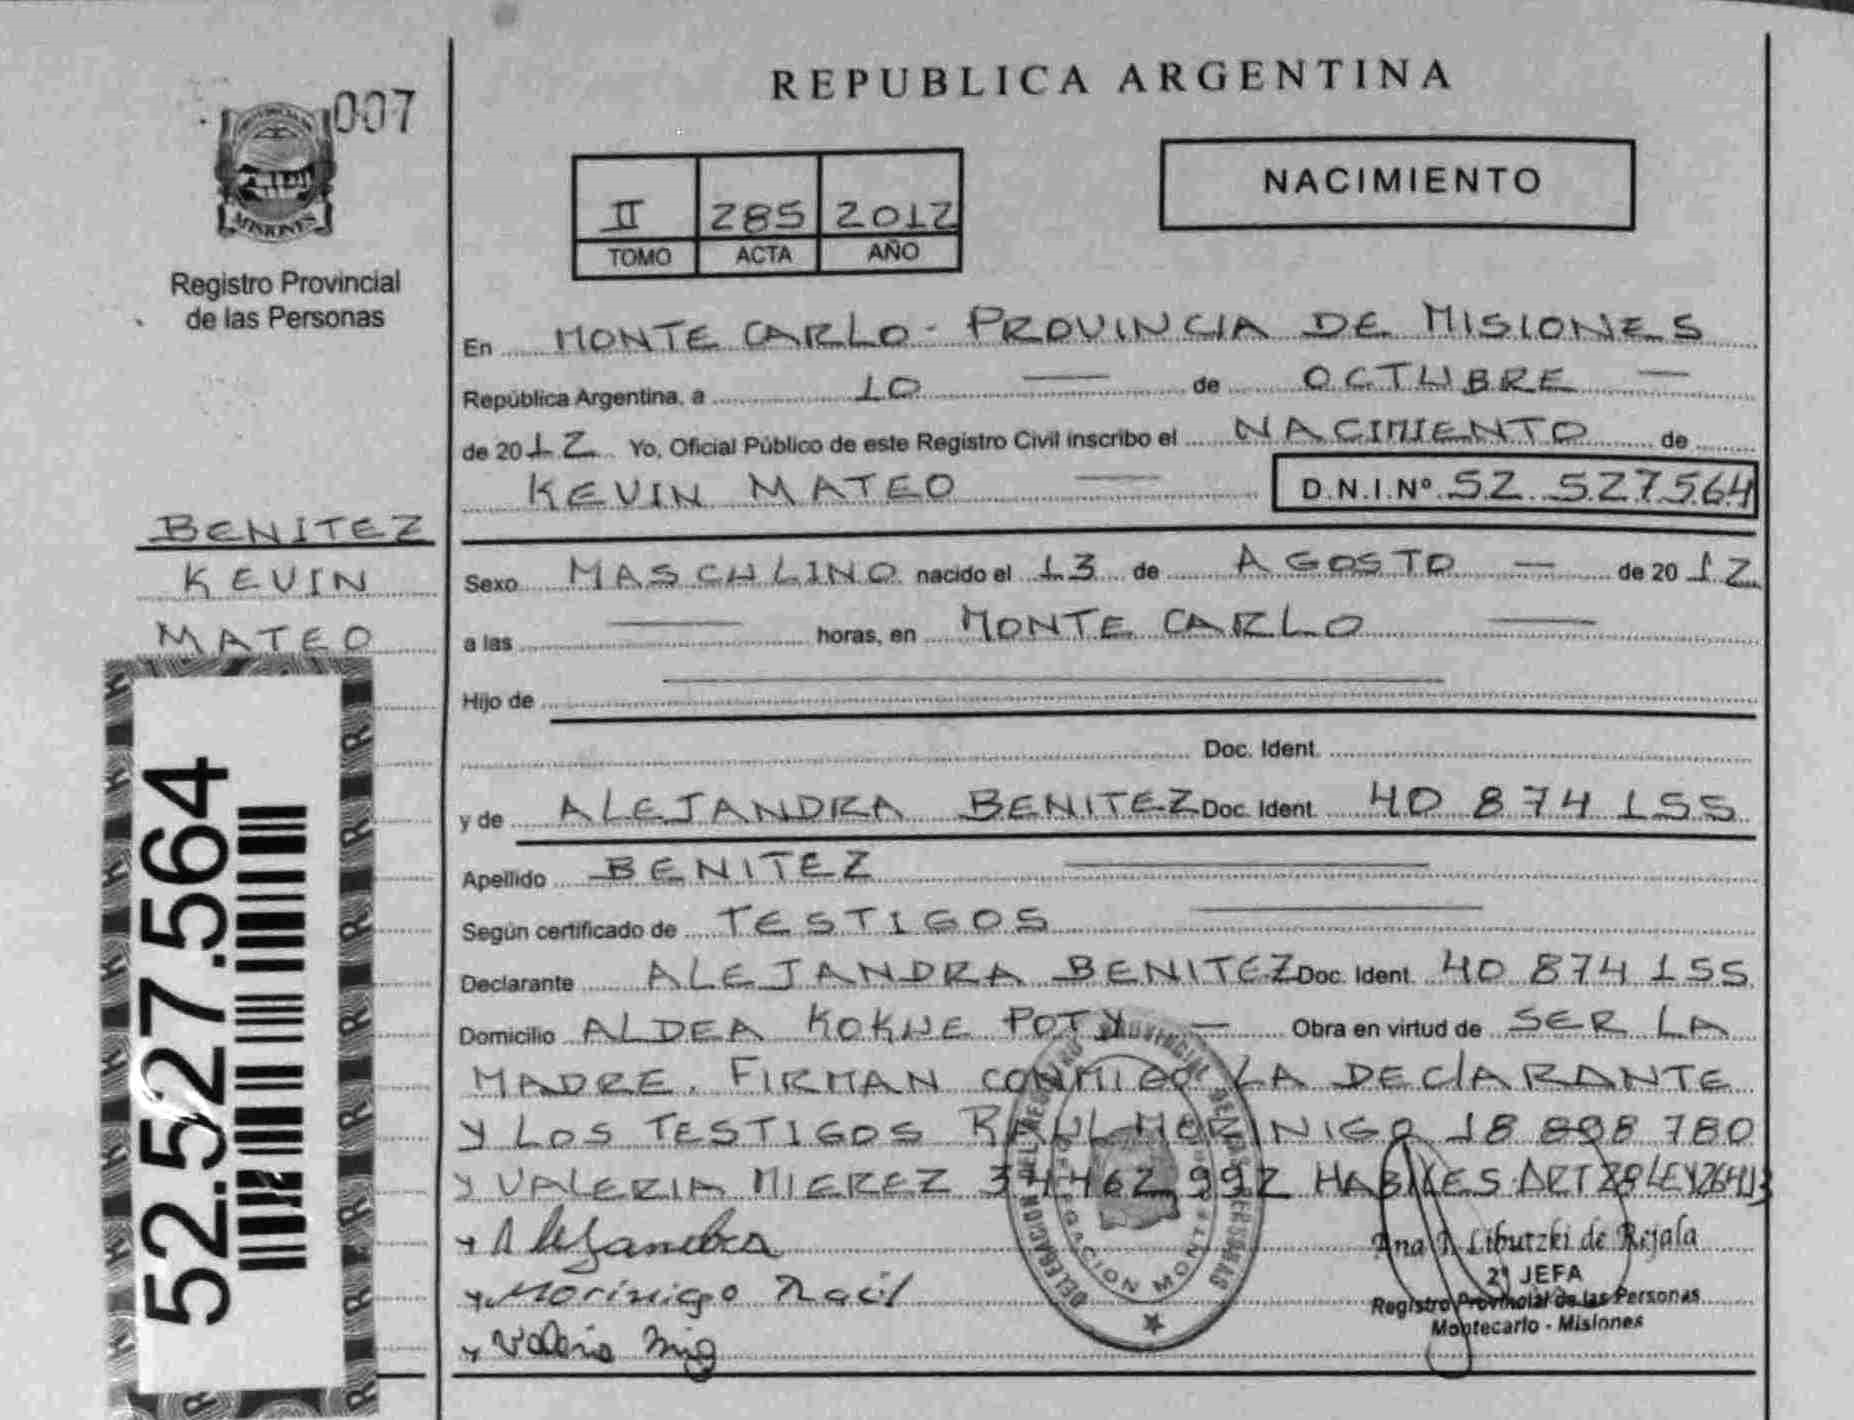 007
MISIONES
Registro Provincial
de las Personas
BENITEZ
KEVIN
MATEO
52.527.564
REPUBLICA ARGENTINA
NACIMIENTO
II 285 2012
TOMO ACTA AÑO
En MONTE CARLO - PROVINCIA DE MISIONES
República Argentina, a 10 — de OCTUBRE —
de 2012 Yo, Oficial Público de este Registro Civil inscribo el NACIMIENTO de
KEVIN MATEO — D.N.I.Nº 52 527564
Sexo MASCULINO nacido el 13 de AGOSTO — de 2012
a las — horas, en MONTE CARLO —
Hijo de —
Doc. Ident.
y de ALEJANDRA BENITEZ Doc. Ident. 40 874 155
Apellido BENITEZ —
Según certificado de TESTIGOS —
Declarante ALEJANDRA BENITEZ Doc. Ident. 40 874 155
Domicilio ALDEA KOKUE POTY — Obra en virtud de SER LA
MADRE. FIRMAN CONMIGO LA DECLARANTE
Y LOS TESTIGOS RAUL MORINIGO 18 898 780
Y VALERIA MIEREZ 34462992 HABILES ART 28 LEY 26413
Alejandra
Morinigo Raúl
Valeria
Ana Libutzki de Rejala
2ª JEFA
Registro Provincial de las Personas
Montecarlo - Misiones